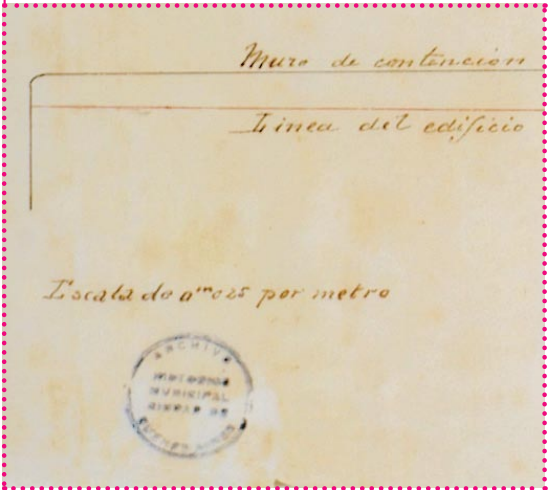 Muro de contencion
Linea del edificio
Escala de 0ᵐ025 por metro
ARCHIVO
HISTORICO
MUNICIPAL
CIUDAD DE
BUENOS AIRES